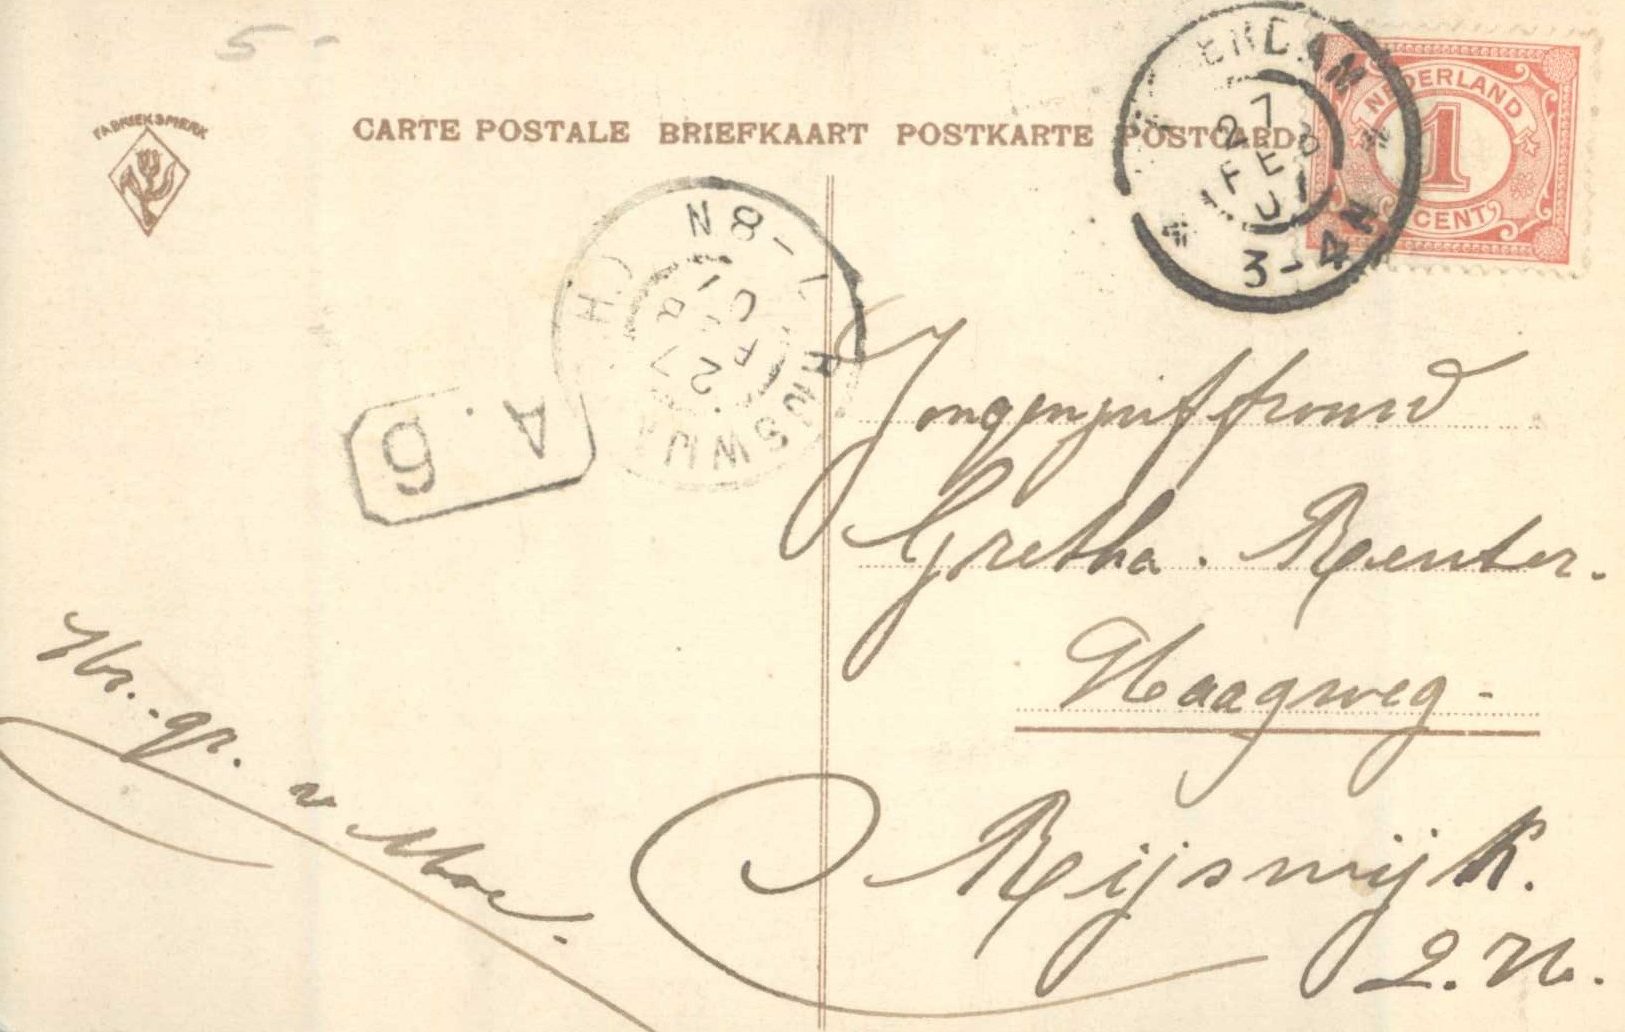 5 -
FABRIEKSMERK
CARTE POSTALE BRIEFKAART POSTKARTE POSTCARD
ENDAM
27
FEB
3-4N
NEDERLAND
1
CENT
7-8N
27
RIJSWIJK
(ZH)
A.6
Jongenjuffrouw
Gretha. Reuter.
Haagweg-
Rijswijk.
Z.H.